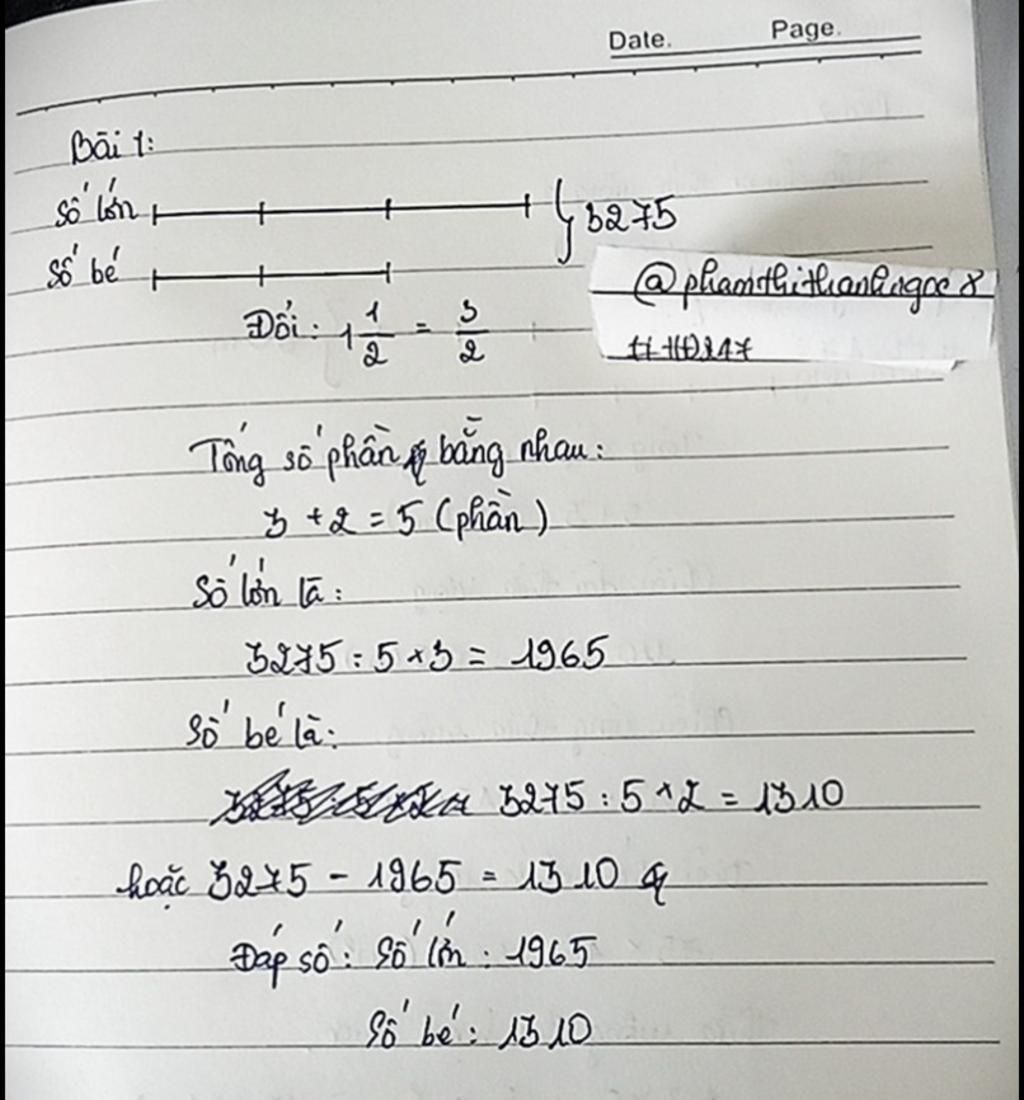 Date. Page.
Bài 1:
Số lớn 3275
Số bé
Đổi: 1 1/2 = 3/2
Tổng số phần bằng nhau:
3 + 2 = 5 (phần)
Số lớn là:
3275 : 5 × 3 = 1965
Số bé là:
3275 : 5 × 2 = 1310
hoặc 3275 - 1965 = 1310
Đáp số: Số lớn: 1965
Số bé: 1310